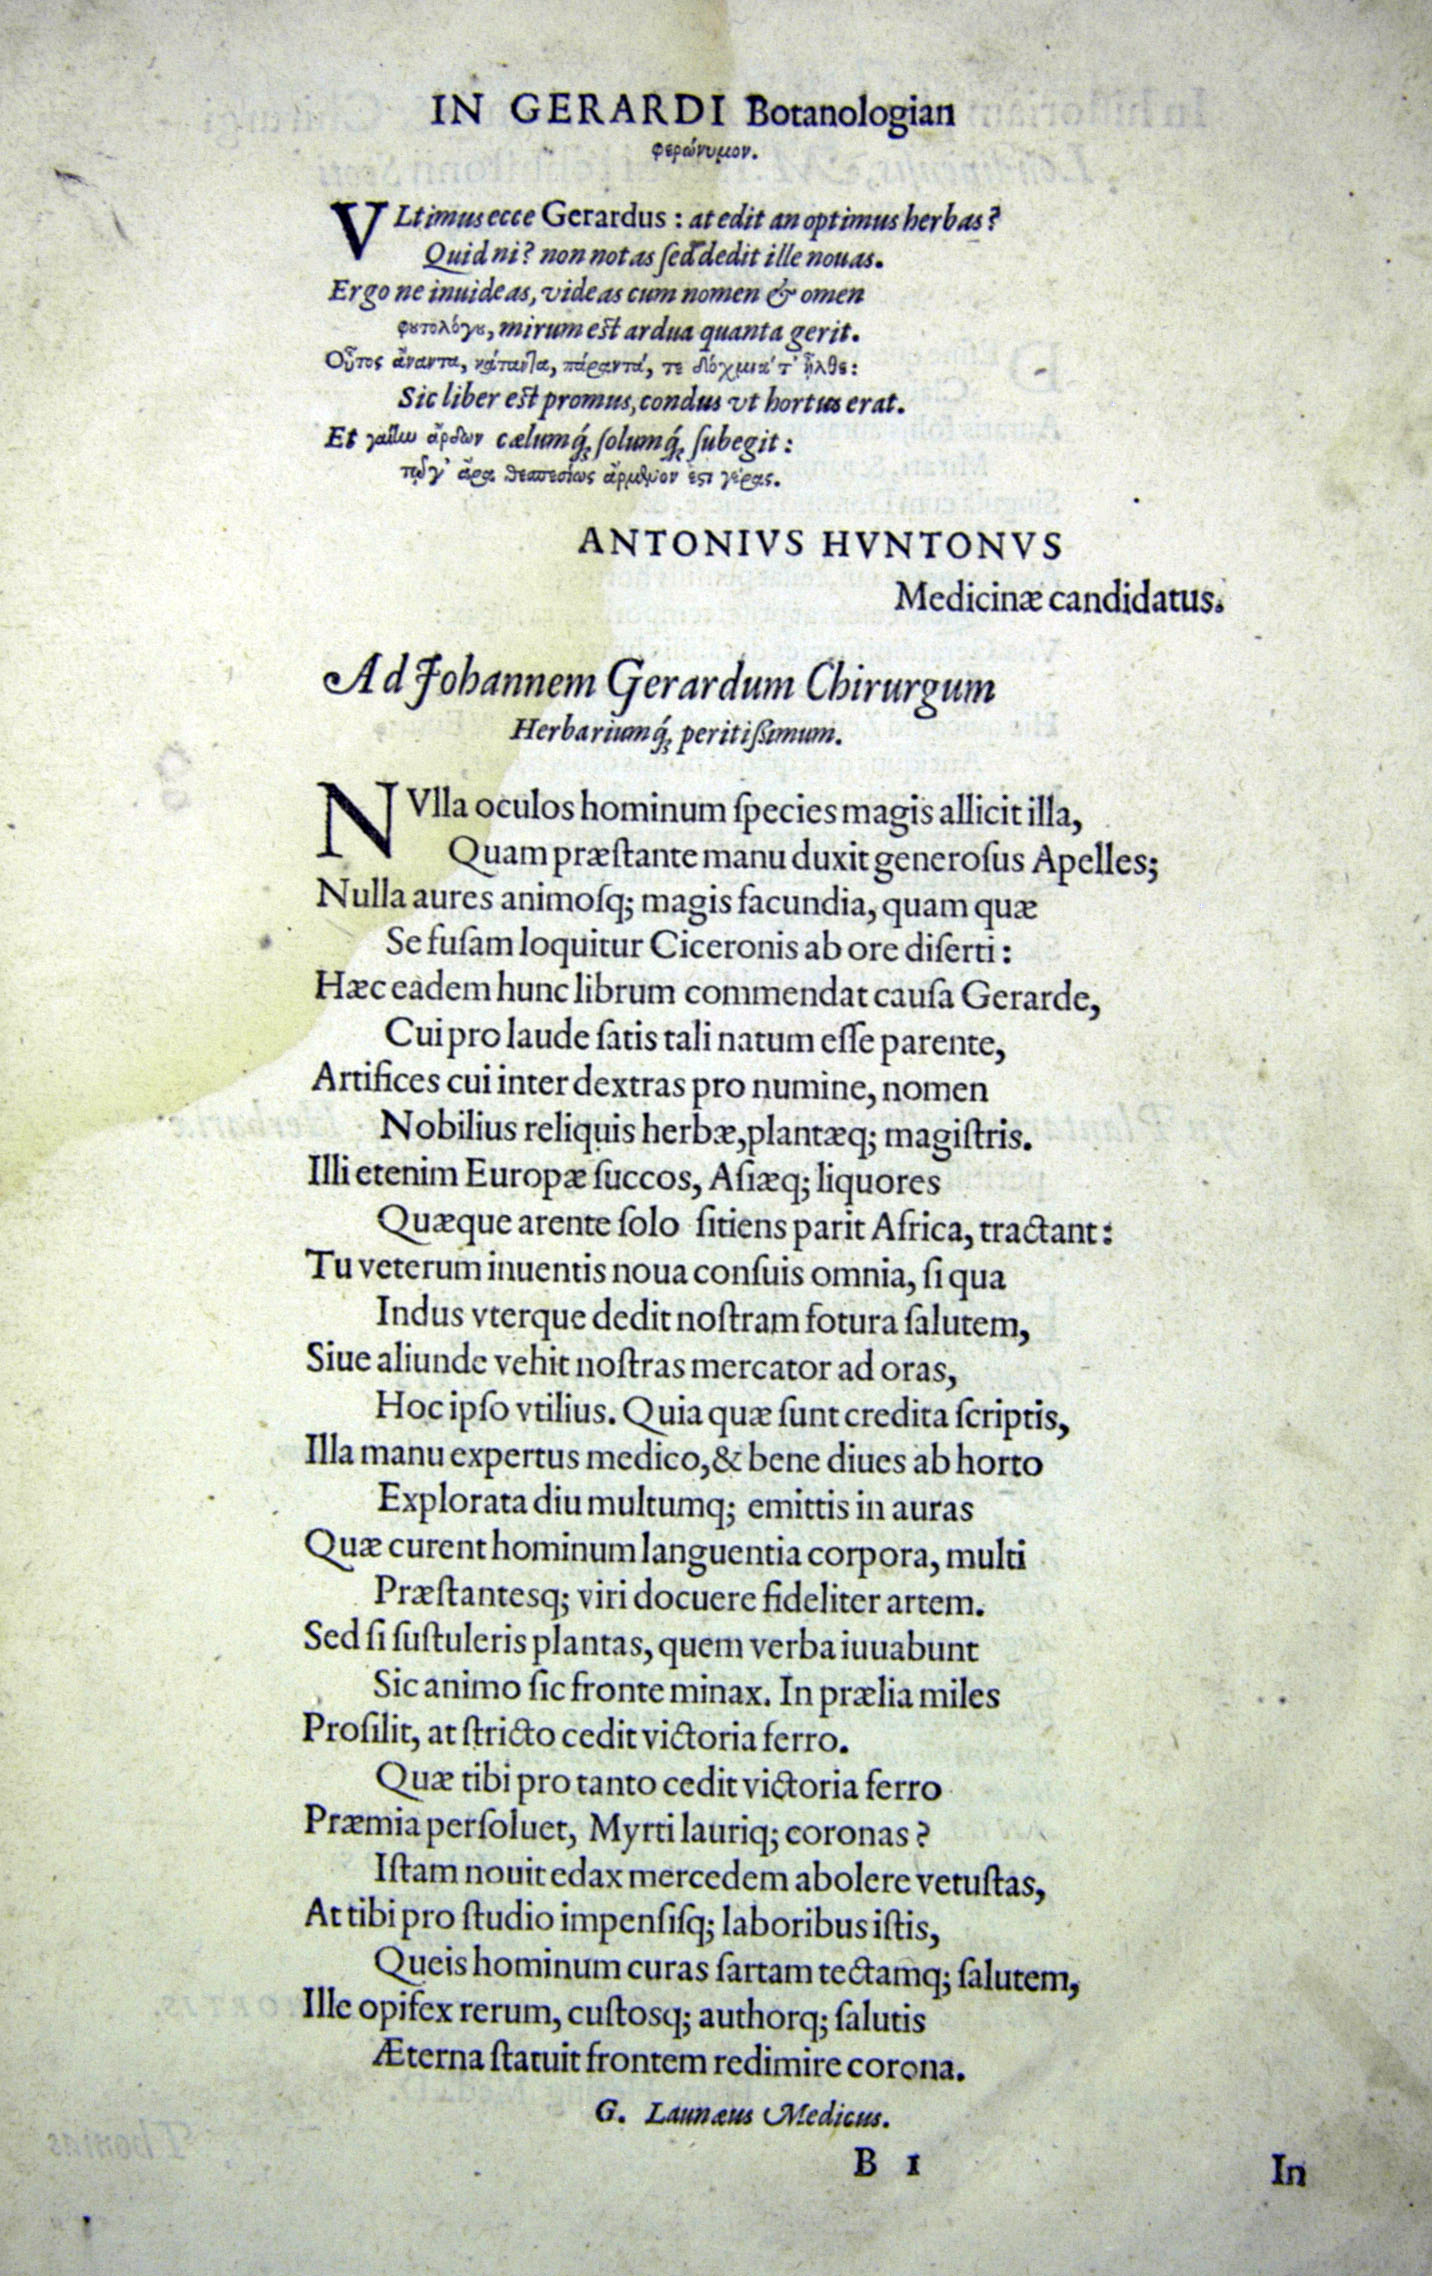 IN GERARDI Botanologian
φερώνυμον.
VLtimus ecce Gerardus : at edit an optimus herbas?
Quid ni? non notas ſed dedit ille nouas.
Ergo ne inuideas, videas cum nomen & omen
φυτολόγȣ, mirum est ardua quanta gerit.
Οὗτος ἄναντα, κάταντα, πάραντά, τε δόχμιά τ' ἦλθε:
Sic liber est promus, condus vt hortus erat.
Et γαῖαν ἄρδων cælumq́; ſolumq́; ſubegit :
ἄρα θεσπεσίως γέρας.
ANTONIVS HVNTONVS
Medicinæ candidatus.
Ad Johannem Gerardum Chirurgum
Herbariumq́; peritiſsimum.
NVlla oculos hominum ſpecies magis allicit illa,
Quam præſtante manu duxit generoſus Apelles;
Nulla aures animoſq; magis facundia, quam quæ
Se fuſam loquitur Ciceronis ab ore diſerti :
Hæc eadem hunc librum commendat cauſa Gerarde,
Cui pro laude ſatis tali natum eſſe parente,
Artifices cui inter dextras pro numine, nomen
Nobilius reliquis herbæ, plantæq; magiſtris.
Illi etenim Europæ ſuccos, Aſiæq; liquores
Quæque arente ſolo ſitiens parit Africa, tractant :
Tu veterum inuentis noua conſuis omnia, ſi qua
Indus vterque dedit noſtram fotura ſalutem,
Siue aliunde vehit noſtras mercator ad oras,
Hoc ipſo vtilius. Quia quæ ſunt credita ſcriptis,
Illa manu expertus medico, & bene diues ab horto
Explorata diu multumq; emittis in auras
Quæ curent hominum languentia corpora, multi
Præſtantesq; viri docuere fideliter artem.
Sed ſi ſuſtuleris plantas, quem verba iuuabunt
Sic animo ſic fronte minax. In prælia miles
Proſilit, at ſtricto cedit victoria ferro.
Quæ tibi pro tanto cedit victoria ferro
Præmia perſoluet, Myrti lauriq; coronas ?
Iſtam nouit edax mercedem abolere vetuſtas,
At tibi pro ſtudio impenſiſq; laboribus iſtis,
Queis hominum curas ſartam tectamq; ſalutem,
Ille opifex rerum, cuſtosq; authorq; ſalutis
Æterna ſtatuit frontem redimire corona.
G. Launæus Medicus.
B 1
In